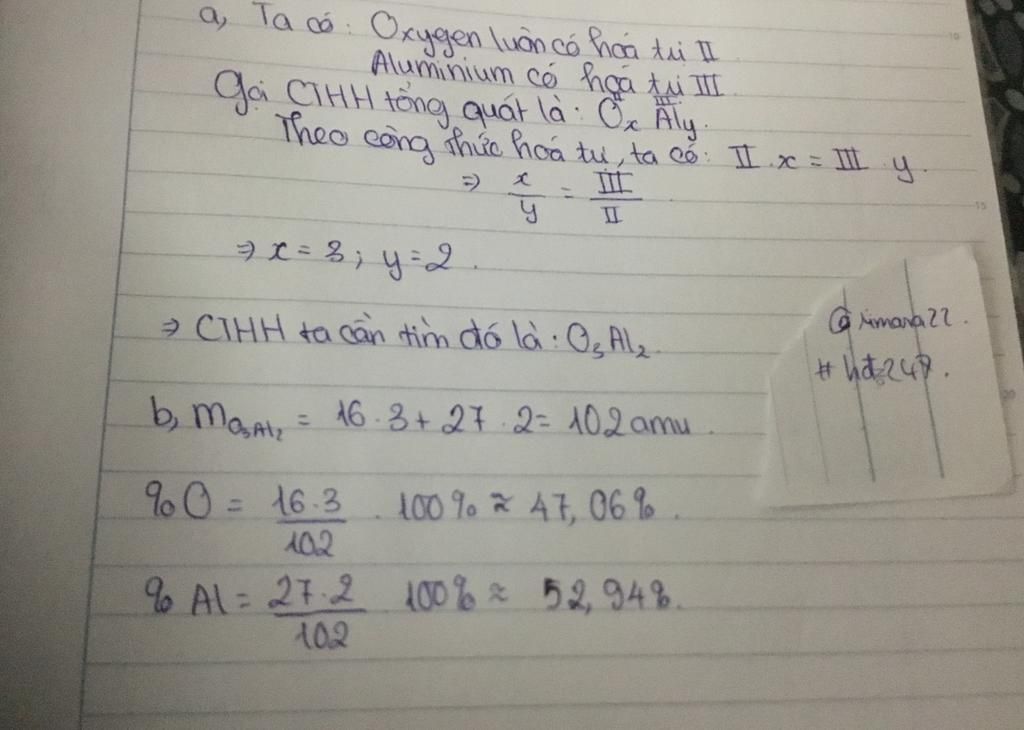 a, Ta có: Oxygen luôn có hoá trị II
Aluminium có hoá trị III
Gọi CTHH tổng quát là: OxAly.
Theo công thức hoá trị, ta có: II.x = III.y.
=> x/y = III/II
=> x = 3; y = 2.
=> CTHH ta cần tìm đó là: O₃Al₂.
b, mO₃Al₂ = 16.3 + 27.2 = 102 amu.
%O = 16.3/102 . 100% ≈ 47,06%.
%Al = 27.2/102 100% ≈ 52,94%.
# hđ247.
10
15
20